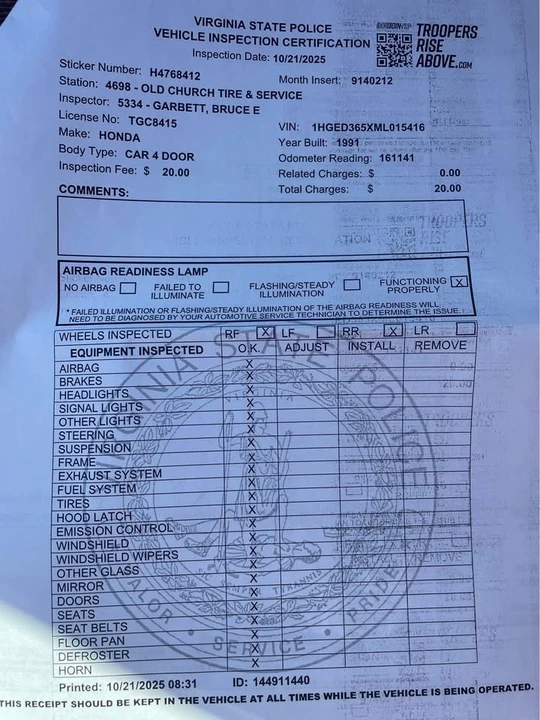 VIRGINIA STATE POLICE
VEHICLE INSPECTION CERTIFICATION
Inspection Date: 10/21/2025
TROOPERS
RISE
ABOVE.COM
Sticker Number: H4768412
Month Insert: 9140212
Station: 4698 - OLD CHURCH TIRE & SERVICE
Inspector: 5334 - GARBETT, BRUCE E
License No: TGC8415
VIN: 1HGED365XML015416
Make: HONDA
Year Built: 1991
Body Type: CAR 4 DOOR
Odometer Reading: 161141
Inspection Fee: $ 20.00
Related Charges: $ 0.00
Total Charges: $ 20.00
COMMENTS:
AIRBAG READINESS LAMP
NO AIRBAG
FAILED TO ILLUMINATE
FLASHING/STEADY ILLUMINATION
FUNCTIONING PROPERLY X
* FAILED ILLUMINATION OR FLASHING/STEADY ILLUMINATION OF THE AIRBAG READINESS WILL
NEED TO BE DIAGNOSED BY YOUR AUTOMOTIVE SERVICE TECHNICIAN TO DETERMINE THE ISSUE.
WHEELS INSPECTED RF X LF RR X LR
EQUIPMENT INSPECTED O.K. ADJUST INSTALL REMOVE
AIRBAG X
BRAKES X
HEADLIGHTS X
SIGNAL LIGHTS X
OTHER LIGHTS X
STEERING X
SUSPENSION X
FRAME X
EXHAUST SYSTEM X
FUEL SYSTEM X
TIRES X
HOOD LATCH X
EMISSION CONTROL X
WINDSHIELD X
WINDSHIELD WIPERS X
OTHER GLASS X
MIRROR X
DOORS X
SEATS X
SEAT BELTS X
FLOOR PAN X
DEFROSTER X
HORN X
VIRGINIA STATE POLICE
VALOR • SERVICE • PRIDE
Printed: 10/21/2025 08:31 ID: 144911440
THIS RECEIPT SHOULD BE KEPT IN THE VEHICLE AT ALL TIMES WHILE THE VEHICLE IS BEING OPERATED.